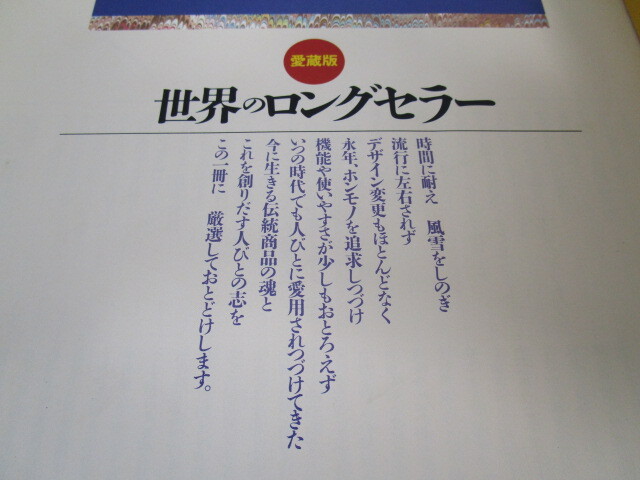 愛蔵版
世界のロングセラー
時間に耐え　風雪をしのぎ
流行に左右されず
デザイン変更もほとんどなく
永年、ホンモノを追求しつづけ
機能や使いやすさが少しもおとろえず
いつの時代でも人びとに愛用されつづけてきた
今に生きる伝統商品の魂と
これを創りだす人びとの志を
この一冊に　厳選しておとどけします。